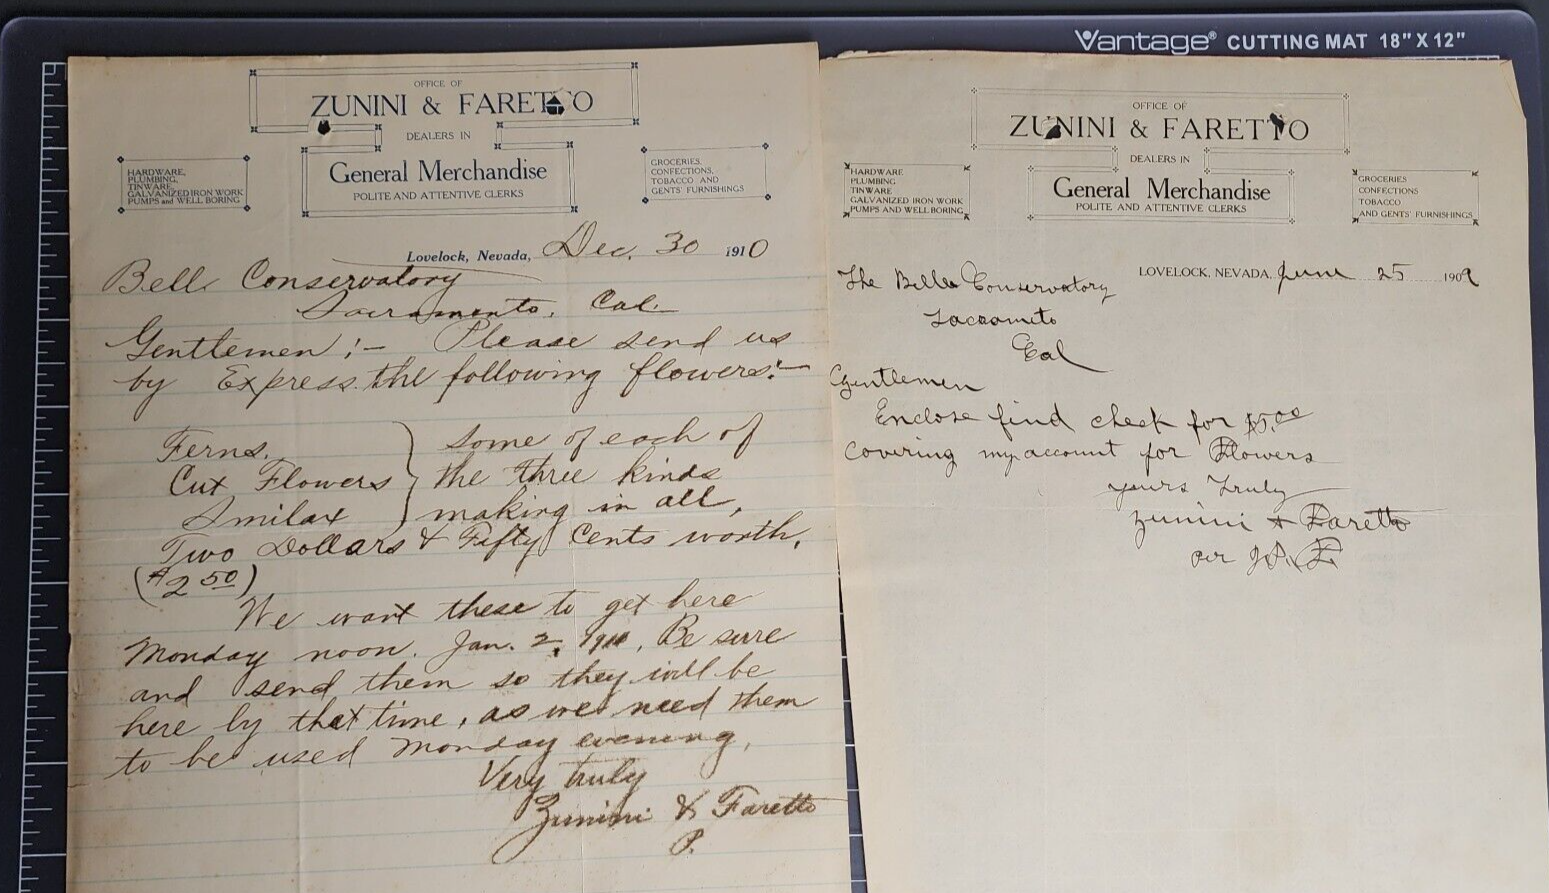 Vantage® CUTTING MAT 18" X 12"
OFFICE OF
ZUNINI & FARETTO
DEALERS IN
General Merchandise
POLITE AND ATTENTIVE CLERKS
HARDWARE,
PLUMBING,
TINWARE,
GALVANIZED IRON WORK
PUMPS and WELL BORING
GROCERIES,
CONFECTIONS,
TOBACCO AND
GENTS' FURNISHINGS
Lovelock, Nevada, Dec. 30 1910
Bell Conservatory
Sacramento, Cal.
Gentlemen:- Please send us
by Express the following flowers:-
Ferns. some of each of
Cut Flowers the three kinds
Smilax making in all,
Two Dollars & Fifty Cents worth,
($2.50)
We want these to get here
Monday noon. Jan. 2, 1911, Be sure
and send them so they will be
here by that time, as we need them
to be used Monday evening,
Very truly
Zunini & Faretto
P.
OFFICE OF
ZUNINI & FARETTO
DEALERS IN
General Merchandise
POLITE AND ATTENTIVE CLERKS
HARDWARE
PLUMBING
TINWARE
GALVANIZED IRON WORK
PUMPS AND WELL BORING
GROCERIES
CONFECTIONS
TOBACCO
AND GENTS' FURNISHINGS
LOVELOCK, NEVADA, June 25 1909
The Bell Conservatory
Sacrameto
Cal
Gentlemen
Enclose find check for $5.00
covering my account for Flowers
yours Truly
Zunini & Faretto
per